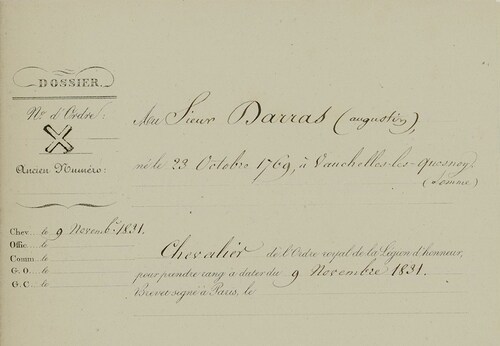 DOSSIER.
No. d'Ordre:
Ancien Numéro:
Au Sieur Darras (augustin),
né le 23 Octobre 1769, à Vauchelles-les-Quesnoy
(Somme)
Chev... le 9 Novembre 1831.
Offic... le
Comm... le
G. O. ... le
G. C. ... le
Chevalier de l'Ordre royal de la Légion d'honneur,
pour prendre rang à dater du 9 Novembre 1831.
Brevet signé à Paris, le